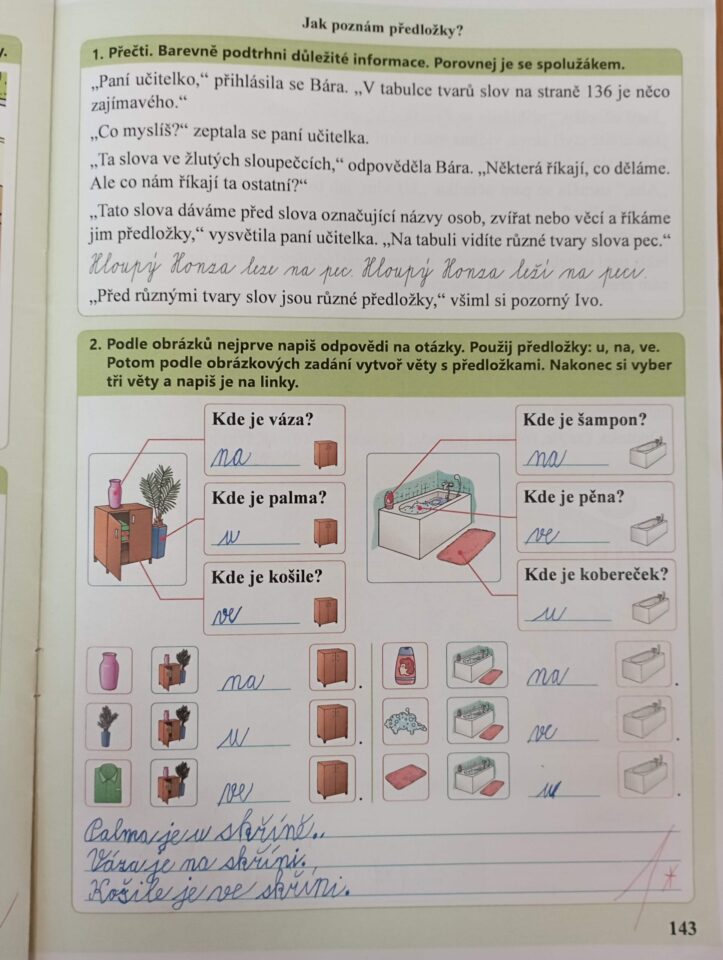 Jak poznám předložky?
1. Přečti. Barevně podtrhni důležité informace. Porovnej je se spolužákem.
„Paní učitelko,“ přihlásila se Bára. „V tabulce tvarů slov na straně 136 je něco
zajímavého.“
„Co myslíš?“ zeptala se paní učitelka.
„Ta slova ve žlutých sloupečcích,“ odpověděla Bára. „Některá říkají, co děláme.
Ale co nám říkají ta ostatní?“
„Tato slova dáváme před slova označující názvy osob, zvířat nebo věcí a říkáme
jim předložky,“ vysvětlila paní učitelka. „Na tabuli vidíte různé tvary slova pec.“
Hloupý Honza leze na pec. Hloupý Honza leží na peci.
„Před různými tvary slov jsou různé předložky,“ všiml si pozorný Ivo.
2. Podle obrázků nejprve napiš odpovědi na otázky. Použij předložky: u, na, ve.
Potom podle obrázkových zadání vytvoř věty s předložkami. Nakonec si vyber
tři věty a napiš je na linky.
Kde je váza?
na
Kde je palma?
u
Kde je košile?
ve
Kde je šampon?
na
Kde je pěna?
ve
Kde je kobereček?
u
na .
u .
ve .
na .
ve .
u .
Palma je u skříně.
Váza je na skříni.
Košile je ve skříni.
1*
143